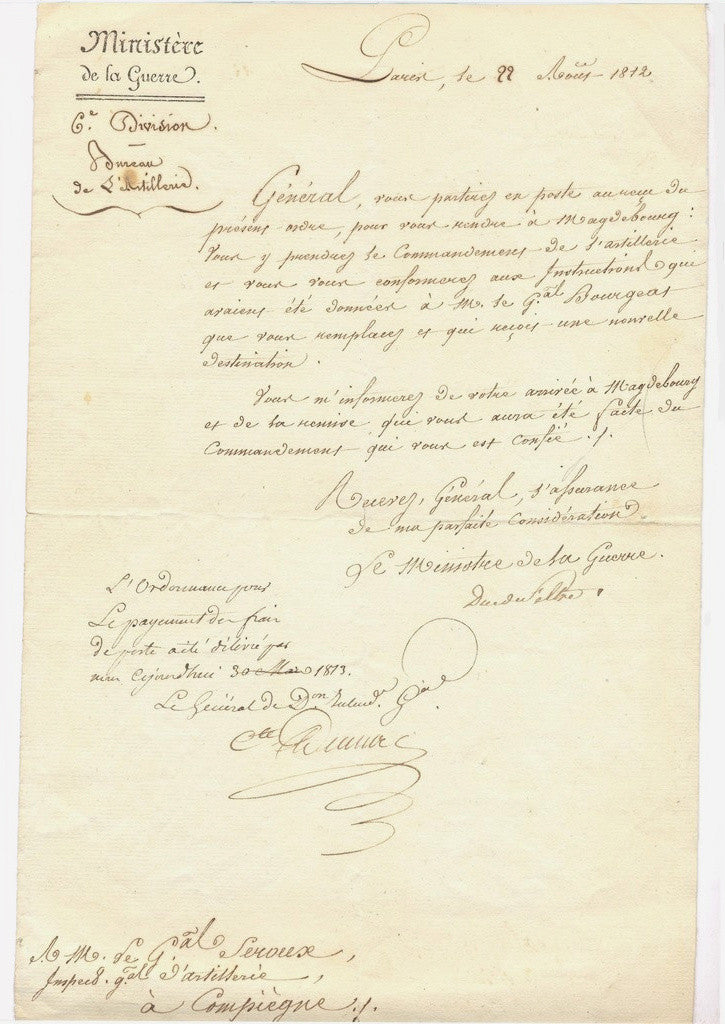 Ministère
de la Guerre.
6.e Division.
Bureau
de L'Artillerie.
Paris, le 22 Août 1812
Général, vous partirez en poste au reçu du
présent ordre, pour vous rendre à Magdebourg :
Vous y prendrez le Commandement de l'artillerie
et vous vous conformerez aux Instructions qui
avaient été données à M. le G.al Bourgeat
que vous remplacez et qui reçoit une nouvelle
destination.
Vous m'informerez de votre arrivée à Magdebourg
et de la remise qui vous aura été faite du
Commandement qui vous est confié ./.
Recevez, Général, l'assurance
de ma parfaite Considération.
Le Ministre de la Guerre.
Duc de Feltre
L'Ordonnance pour
Le payement des frais
de poste a été délivré par
nous Cejourdhui 30 Mars 1813.
Le Général de Don Intend. Gal
Cte Dumas
A M. le G.al Seroux,
Inspect. gal d'artillerie,
à Compiègne ./.